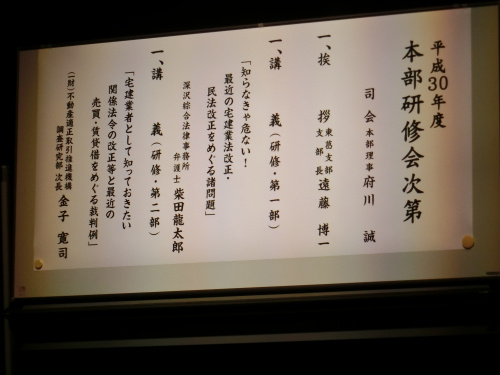 平成30年度
本部研修会次第
司会 本部理事 府川 誠
一、挨 拶 東葛支部 支部長 遠藤 博一
一、講 義(研修・第一部)
「知らなきゃ危ない!
最近の宅建業法改正・
民法改正をめぐる諸問題」
深沢綜合法律事務所
弁護士 柴田龍太郎
一、講 義(研修・第二部)
「宅建業者として知っておきたい
関係法令の改正等と最近の
売買・賃貸借をめぐる裁判例」
(一財)不動産適正取引推進機構
調査研究部 次長 金子 寛司